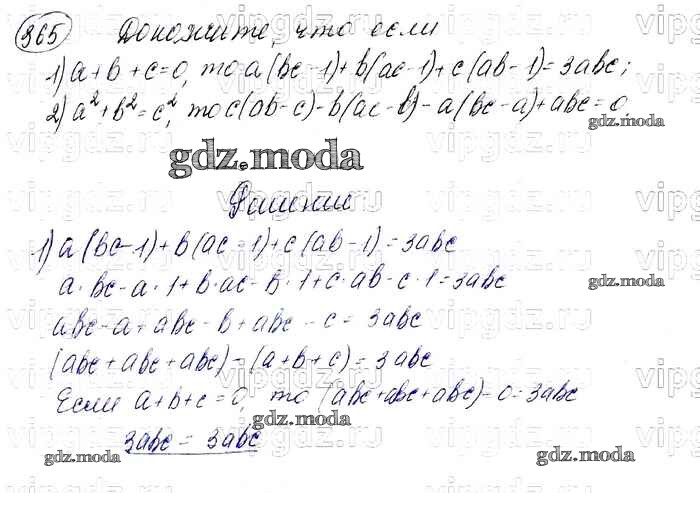 365 Докажите, что если
1) a + b + c = 0, то a(bc - 1) + b(ac - 1) + c(ab - 1) = 3abc;
2) a² + b² = c², то c(ab - c) - b(ac - b) - a(bc - a) + abc = 0
gdz.moda
gdz.moda
Решение:
1) a(bc - 1) + b(ac - 1) + c(ab - 1) = 3abc
a · bc - a · 1 + b · ac - b · 1 + c · ab - c · 1 = 3abc
gdz.moda
abc - a + abc - b + abc - c = 3abc
(abc + abc + abc) - (a + b + c) = 3abc
Если a + b + c = 0, то (abc + abc + abc) - 0 = 3abc
gdz.moda
3abc = 3abc
gdz.moda
gdz.moda